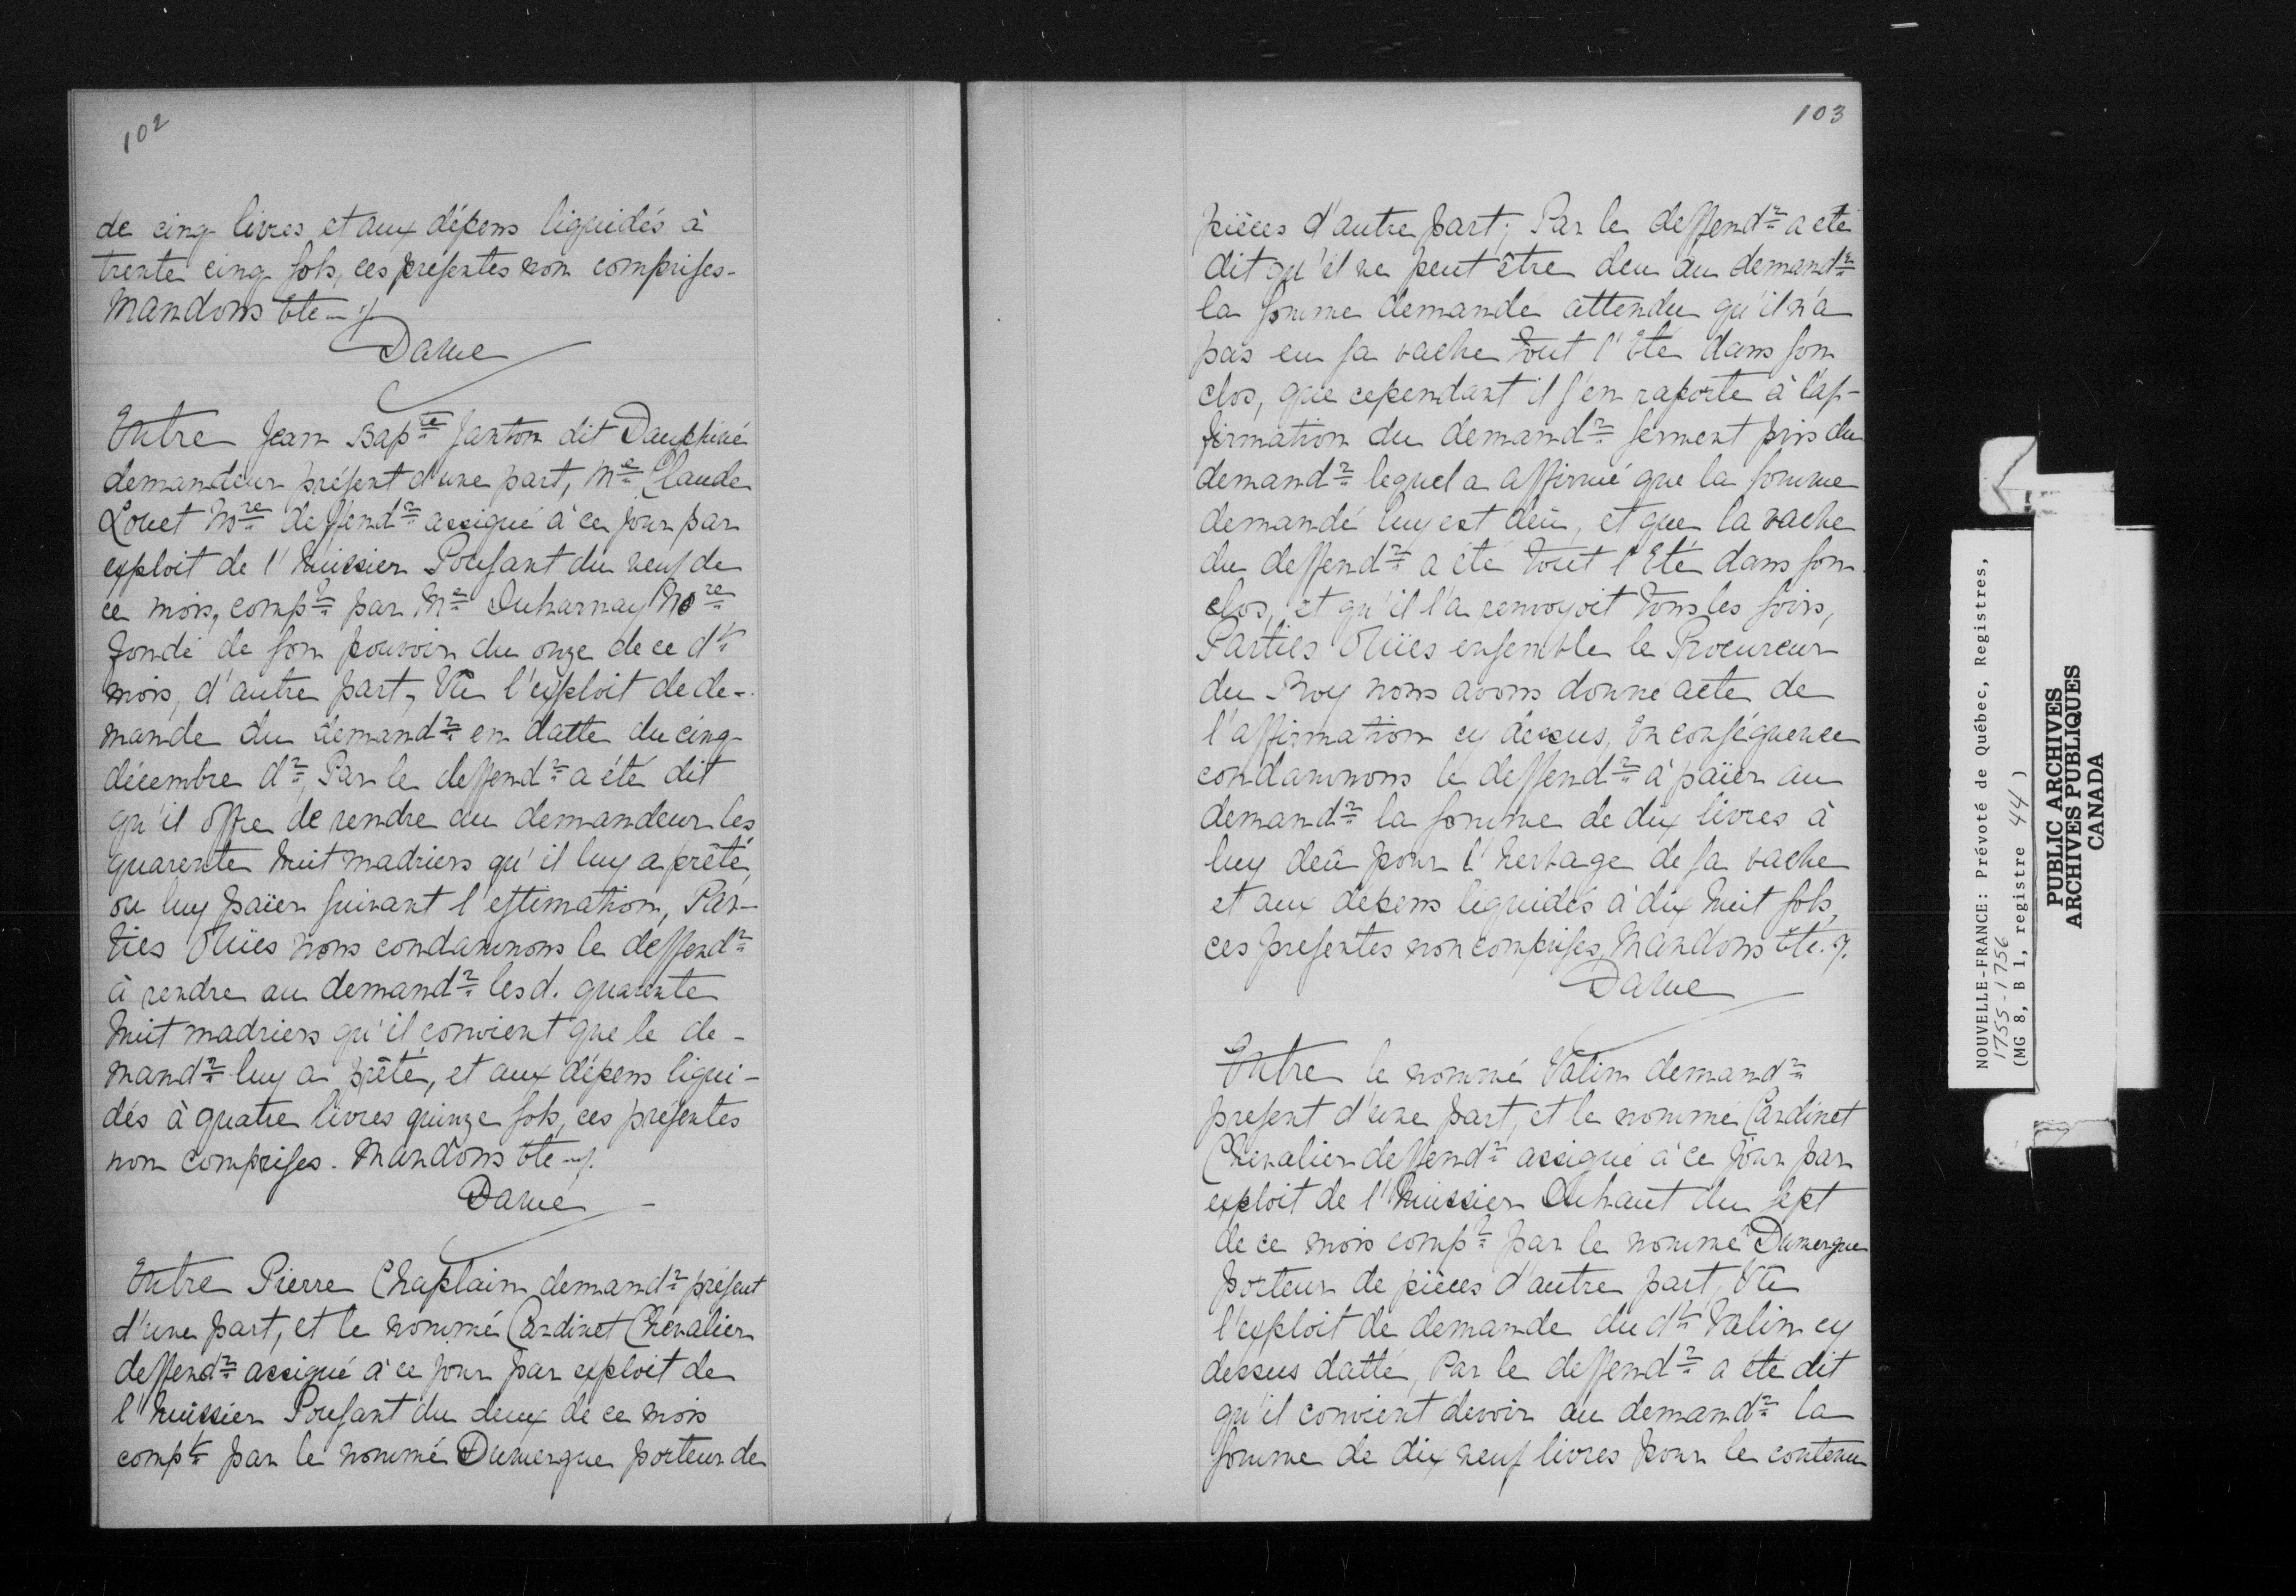 102
de cinq livres et aux dépens liquidés à
trente cinq sols, ces présentes non comprises.
Mandons &te ./.
Daine
Entre Jean Bapte Janton dit Dauphiné
demandeur présent d'une part, Me Claude
Louet Nore deffendr assigné à ce jour par
exploit de l'huissier Poussant du neuf de
ce mois, compt par Me Duharnay Nore
fondé de son pouvoir du onze de ce dt
mois, d'autre part, Vû l'exploit de de-
mande du demandr en datte du cinq
décembre dr, Par le deffendr a été dit
qu'il offre de rendre au demandeur les
quarente huit madriers qu'il luy a prêté,
ou luy païer suivant l'estimation, Par-
ties Oüies nous condamnons le deffendr
à rendre au demandr lesd. quarente
huit madriers qu'il convient que le de-
mandr luy a prêté, et aux dépens liqui-
dés à quatre livres quinze sols, ces présentes
non comprises. Mandons &te ./.
Daine
Entre Pierre Chaplain demandr présent
d'une part, et le nommé Cardinet Chevalier
deffendr assigné à ce jour par exploit de
l'huissier Poussant du deux de ce mois
compt par le nommé Dumergue porteur de
103
pièces d'autre part; Par le deffendr a eté
dit qu'il ne peut être deu au demandr
la somme demandé attendu qu'il n'a
pas eu sa vache tout l'Eté dans son
clos, que cependant il s'en raporte à l'af-
firmation du demandr serment pris du
demandr lequel a affirmé que la somme
demandé luy est deüe, et que la vache
du deffendr a été tout l'Eté dans son
clos, et qu'il l'a renvoyoit tous les soirs,
Parties Oüies ensemble le Procureur
du Roy nous avons donné acte de
l'affirmation cy dessus, En conséquence
condamnons le deffendr à païer au
demandr la somme de dix livres à
luy deü pour l'herbage de sa vache
et aux dépens liquidés à dix huit sols,
ces presentes non comprises, Mandons &te ./.
Daine
Entre le nommé Valin demandr
present d'une part, et le nommé Cardinet
Chevalier deffendr assigné à ce jour par
exploit de l'huissier Duhaut du sept
de ce mois compt par le nommé Dumergue
porteur de pièces d'autre part, Vû
l'exploit de demande du dt Valin cy
dessus datté, Par le deffendr a été dit
qu'il convient devoir au demandr la
somme de dix neuf livres pour le contenu
NOUVELLE-FRANCE: Prévoté de Québec, Registres,
1755-1756
(MG 8, B 1, registre 44)
PUBLIC ARCHIVES
ARCHIVES PUBLIQUES
CANADA